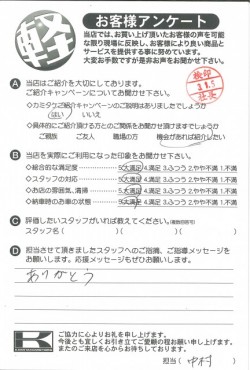 軽
お客様アンケート
当店では、お買い上げ頂いたお客様の声を可能
な限り現場に反映し、お客様により良い商品と
サービスを提供する事に努めています。
大変お手数ですが是非お声をお聞かせ下さい。
A 当店はご紹介を大切にしております。
ご紹介キャンペーンについてお聞かせ下さい。
◇カミタケご紹介キャンペーンのご説明はありましたでしょうか
はい / いいえ
◇具体的にご紹介頂ける方とのご関係をお聞かせ頂けますでしょうか
ご親族 ご友人 職場の方 機会があれば紹介したい
B 当店を実際にご利用になった印象をお聞かせ下さい。
◇総合的な満足度 5.大満足 4.満足 3.ふつう 2.やや不満 1.不満
◇スタッフの対応 5.大満足 4.満足 3.ふつう 2.やや不満 1.不満
◇お店の雰囲気、清掃 5.大満足 4.満足 3.ふつう 2.やや不満 1.不満
◇納車時のお車の状態 5.大満足 4.満足 3.ふつう 2.やや不満 1.不満
C 評価したいスタッフがいれば教えてください。(複数回答可)
スタッフ名( )( )( )
D 担当させて頂きましたスタッフへのご指摘、ご指導メッセージを
お願いします。応援メッセージもぜひお願いします。
ありがとう
K
ご協力に心よりお礼を申し上げます。
今後とも宜しくお引き立てご愛顧の程お願い申し上げます。
またのご来店を心からお待ちしております。
担当( 中村 )